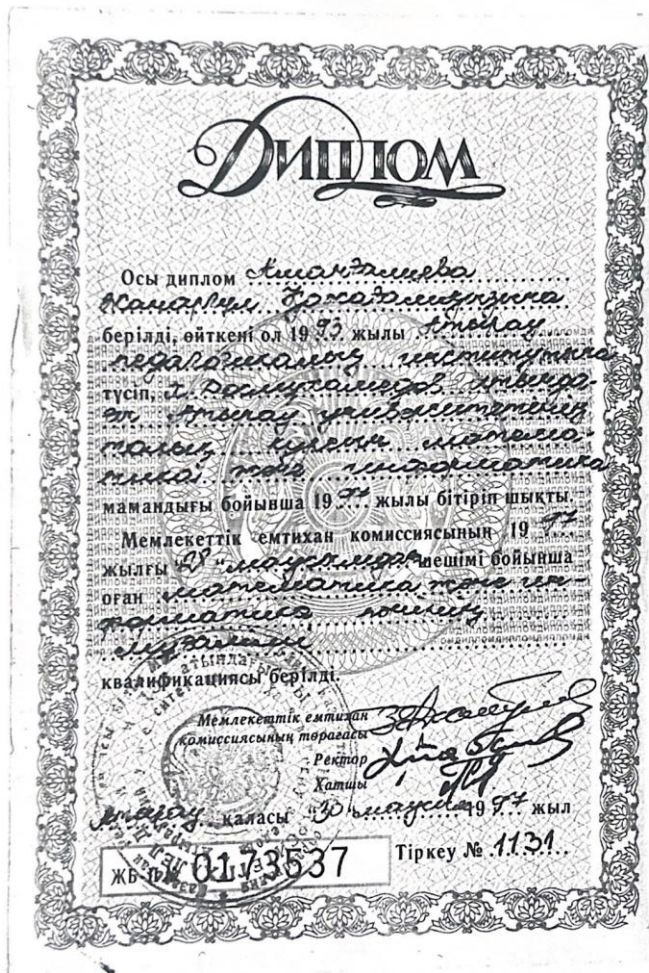 Диплом
Осы диплом Аманғалиева
Жанаргүл Зохадамқызына
берілді, өйткені ол 1993 жылы Атырау
педагогикалық институтына
түсіп, Х. Досмухамедов атында-
ғы Атырау университетінің
толық курсын математи-
тика және информатика
мамандығы бойынша 1997 жылы бітіріп шықты.
Мемлекеттік емтихан комиссиясының 1997
жылғы "28" маусымдағы шешімі бойынша
оған математика және ин-
форматика пәнінің
мұғалімі
квалификациясы берілді.
Мемлекеттік емтихан
комиссиясының төрағасы
Ректор
Хатшы
Атырау қаласы "30" маусым 1997 жыл
ЖБ-II № 0173537
Тіркеу № 1131